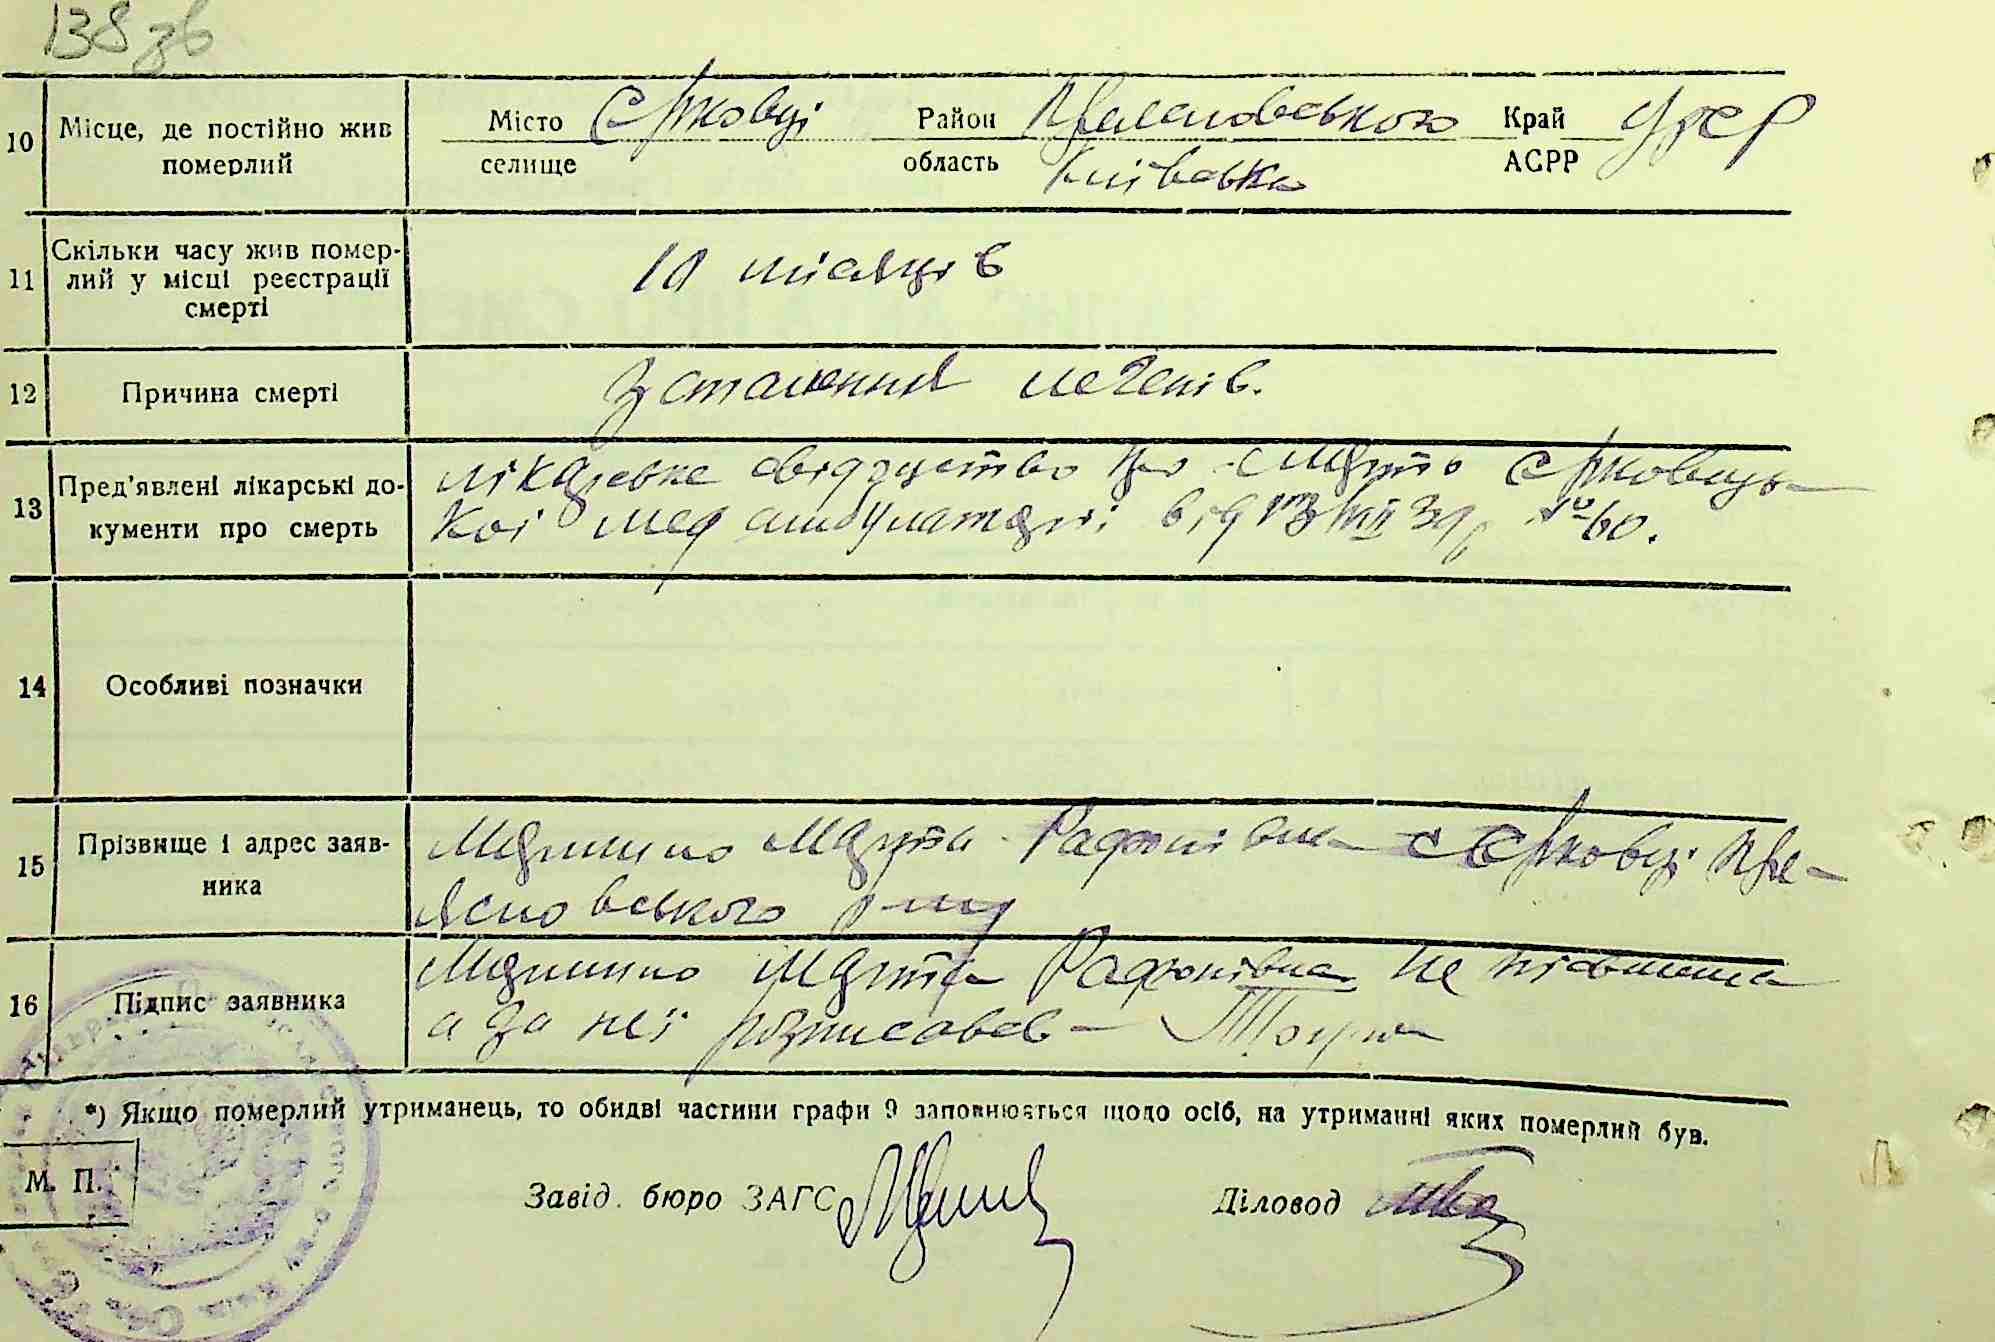 138 зв
10 Місце, де постійно жив померлий
Місто Єрковці Район Преяславського Край УРСР
селище область Київська АСРР
11 Скільки часу жив помер-
лий у місці реєстрації
смерті
10 місяців
12 Причина смерті
Зспалення легенів.
13 Пред'явлені лікарські до-
кументи про смерть
лікарське свідоцтво про смерть Єрковець-
кої мед амбулаторії від 39р №60.
14 Особливі позначки
15 Прізвище і адрес заяв-
ника
Марта с Єрковці Пре-
яславського р-ну
16 Підпис заявника
Марта не письменна
а за неї розписавсь –
*) Якщо померлий утриманець, то обидві частини графи 9 заповнюється щодо осіб, на утриманні яких померлий був.
М. П.
Завід. бюро ЗАГС
Діловод